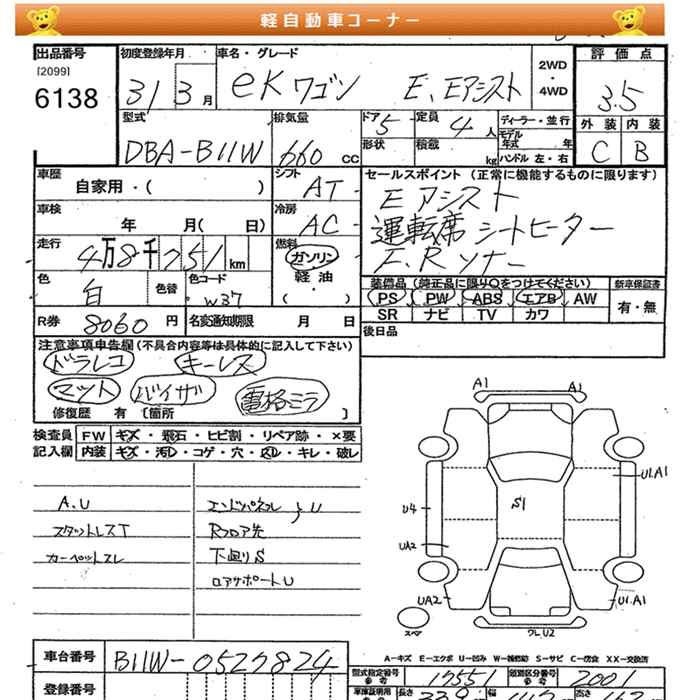 軽自動車コーナー
出品番号 初度登録年月 車名・グレード 2WD・4WD 評価点
[2099]
6138 31 3月 eKワゴン E、Eアシスト 3.5
型式 排気量 ドア 定員 ディーラー・並行 外装 内装
DBA-B11W 660cc 5 4人 モデル年式 年 C B
形状 積載 kg ハンドル 左・右
車歴 シフト セールスポイント(正常に機能するものに限ります)
自家用・( ) AT Eアシスト
車検 冷房 運転席シートヒーター
年 月( 日) AC
走行 燃料
4万8千751km ガソリン・軽油・( )
色 色替 色コード 装備品(純正品に限り○をつけてください) 新車保証書
白 W37 PS PW ABS エアB AW 有・無
SR ナビ TV カワ
R券 8060円 名変通知期限 月 日 後日品
注意事項申告欄(不具合内容等は具体的に記入して下さい)
ドラレコ キーレス
マット バイザー 電格ミラ
修復歴 有 [箇所 ]
検査員 FW キズ・飛石・ヒビ割・リペア跡・×要
記入欄 内装 キズ・汚レ・コゲ・穴・スレ・キレ・破レ
A1 A1
U1.A1
S1
U4
UA2
UA2 U1.A1
スペア クレU2
A.U エンドパネルU
スタットレスT Rフロア先
カーペットスレ 下廻りS
ロアサポートU
A-キズ E-エクボ U-凹み W-補修跡 S-サビ C-腐食 XX-交換済
車台番号 B11W-0527824
型式指定番号 17551 類別区分番号 2001
参考 参考
登録番号
長さ 幅 高